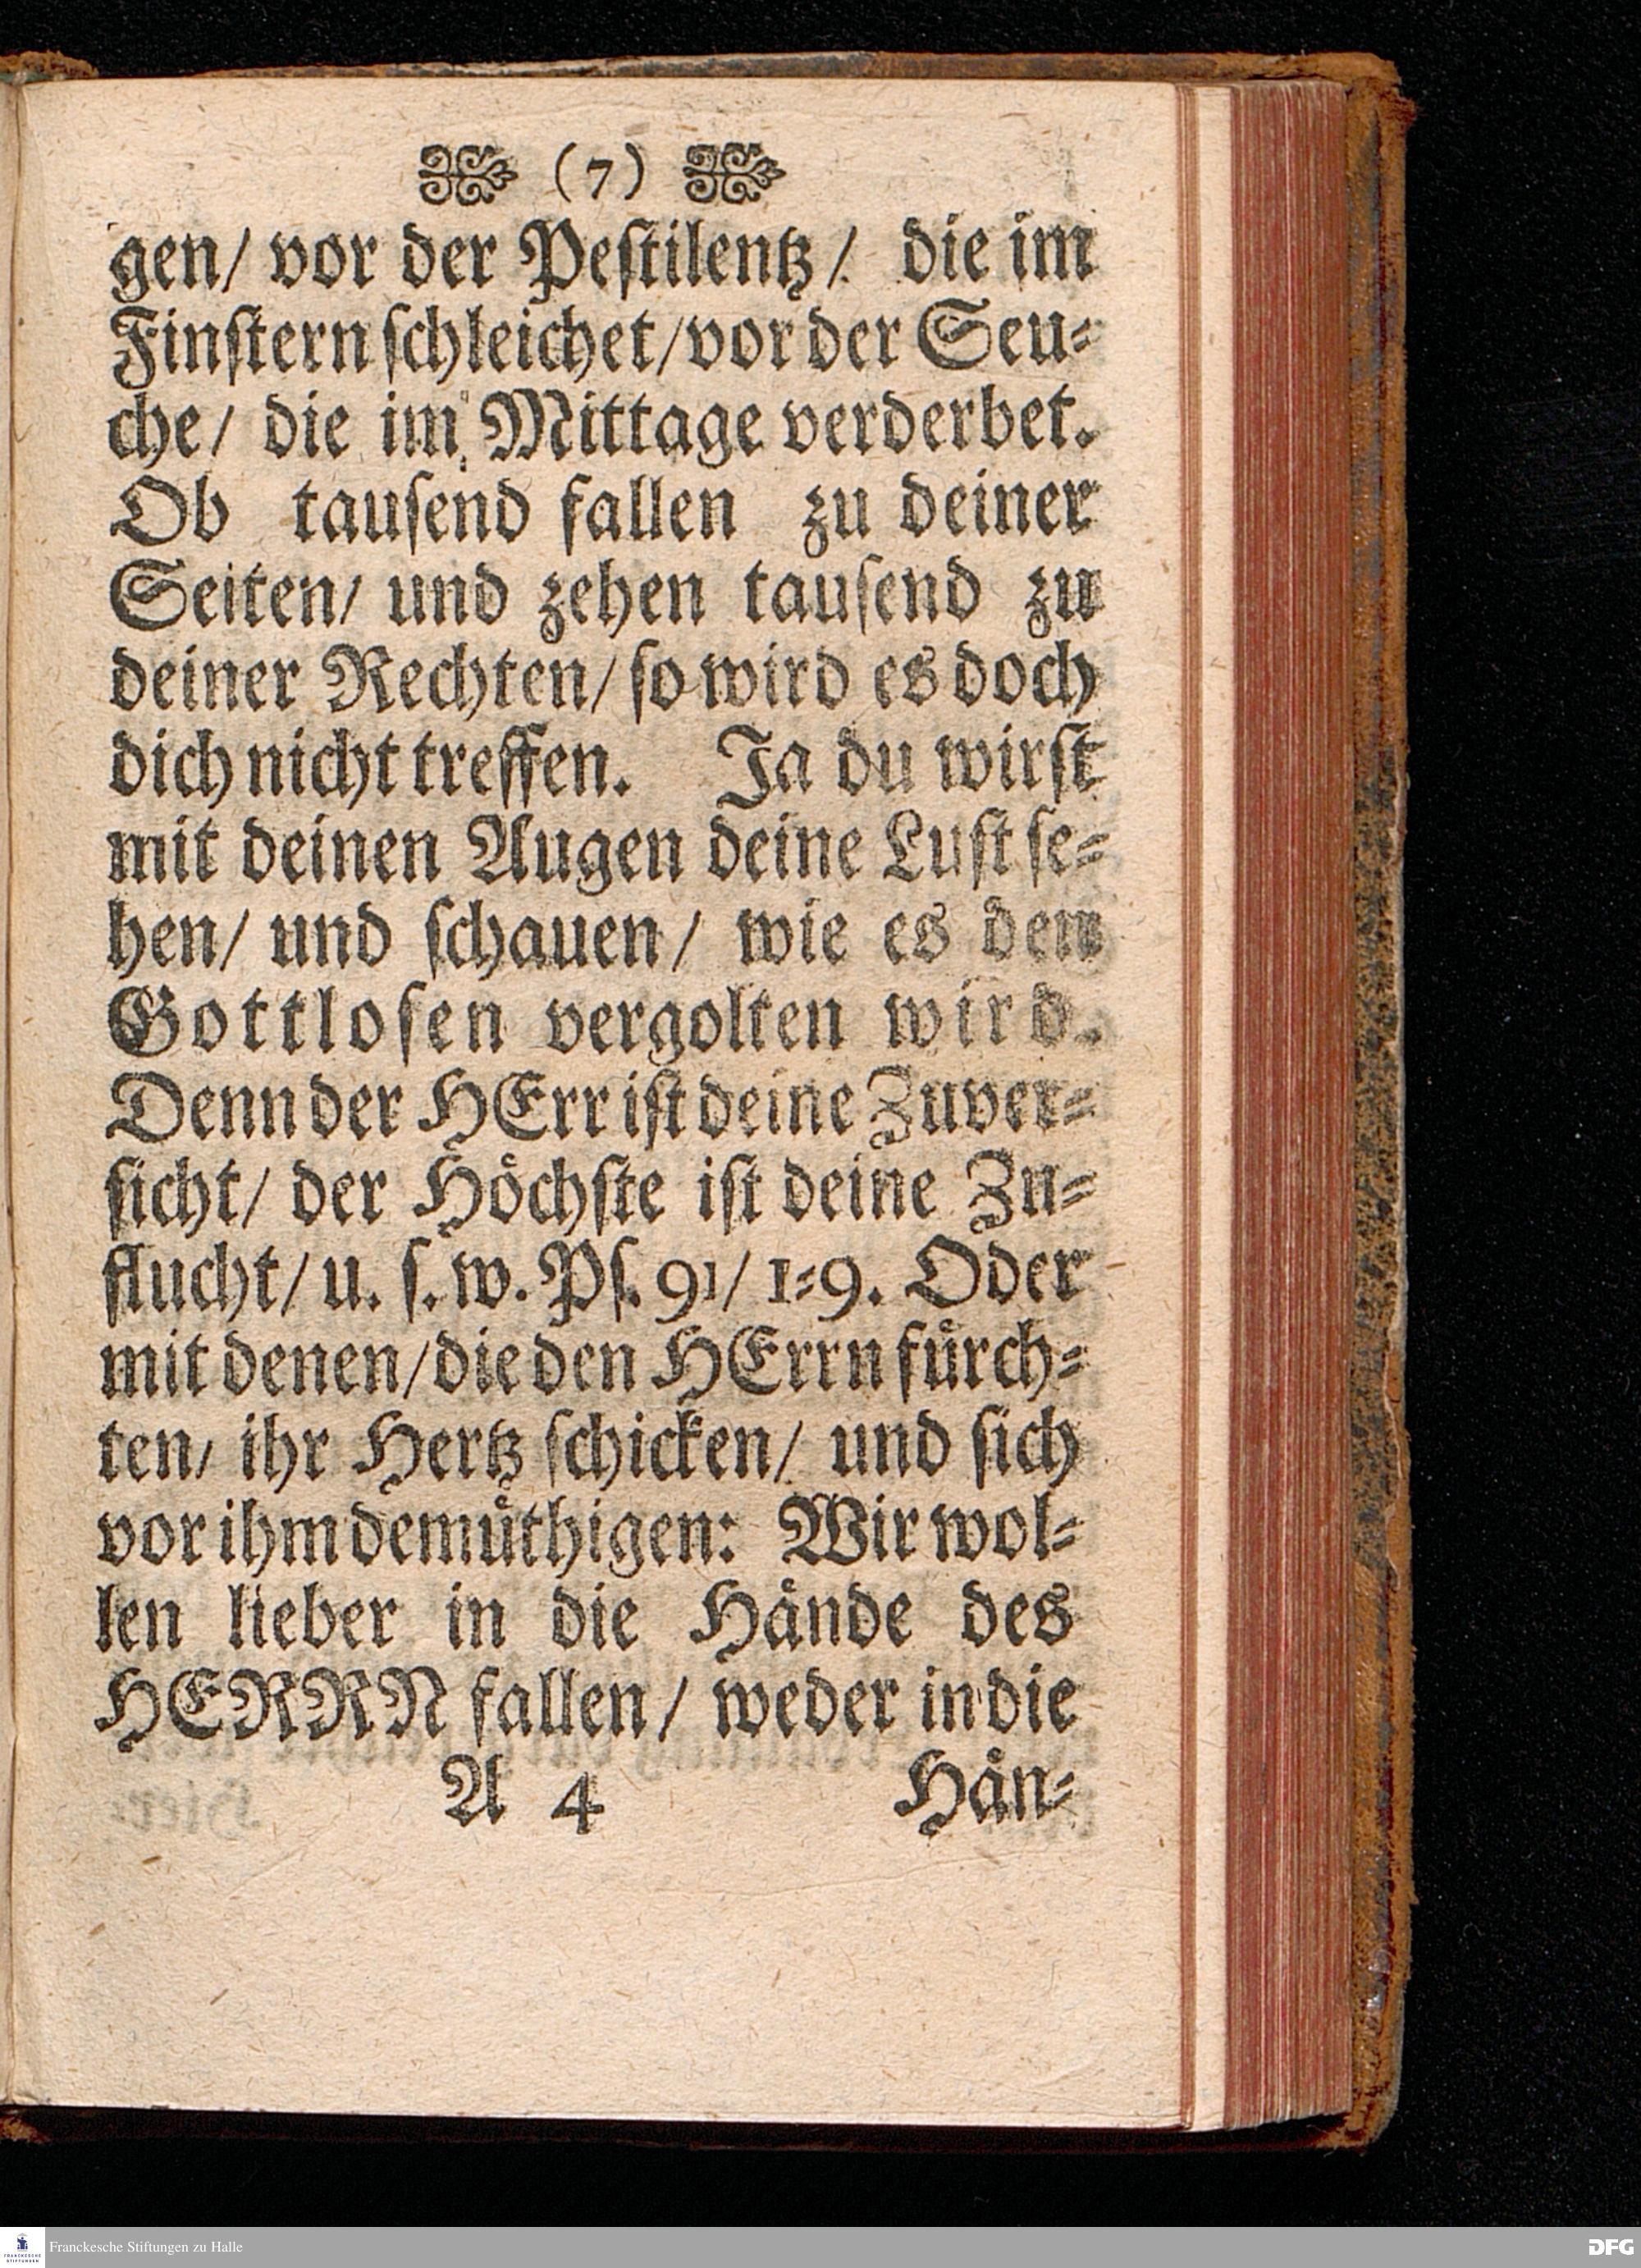 (7)
gen/ vor der Peſtilentz/ die im
Finſtern ſchleichet/ vor der Seu⸗
che/ die im Mittage verderbet.
Ob tauſend fallen zu deiner
Seiten/ und zehen tauſend zu
deiner Rechten/ ſo wird es doch
dich nicht treffen. Ja du wirſt
mit deinen Augen deine Luſt ſe⸗
hen/ und ſchauen/ wie es den
Gottloſen vergolten wird.
Denn der HErr iſt deine Zuver⸗
ſicht/ der Hoͤchſte iſt deine Zu⸗
flucht/ u. ſ. w. Pſ. 91/ 1⸗9. Oder
mit denen/ die den HErrn fuͤrch⸗
ten/ ihr Hertz ſchicken/ und ſich
vor ihm demuͤthigen: Wir wol⸗
len lieber in die Haͤnde des
HERRN fallen/ weder in die
A 4 Haͤn⸗
Franckesche Stiftungen zu Halle
DFG